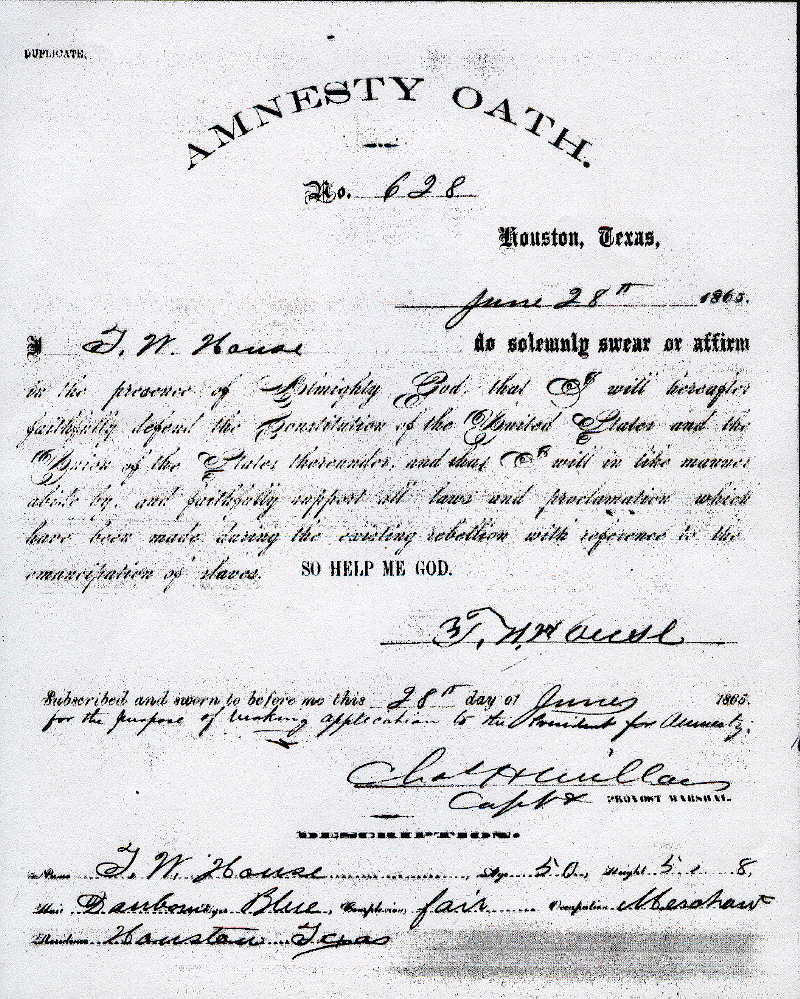 DUPLICATE.
AMNESTY OATH.
No. 628
Houston, Texas,
June 28th 1865.
I T. W. House do solemnly swear or affirm
in the presence of Almighty God, that I will hereafter
faithfully defend the Constitution of the United States and the
Union of the States thereunder, and that I will in like manner
abide by, and faithfully support all laws and proclamation which
have been made during the existing rebellion with reference to the
emancipation of slaves. SO HELP ME GOD.
T. W. House
Subscribed and sworn to before me this 28th day of June 1865.
for the purpose of making application to the President for Amnesty.
Chas
Capt & PROVOST MARSHAL.
DESCRIPTION.
Name T. W. House Age 50, Height 5 8,
Hair Eyes Blue, Complexion fair Occupation Merchant
Residence Houston Texas